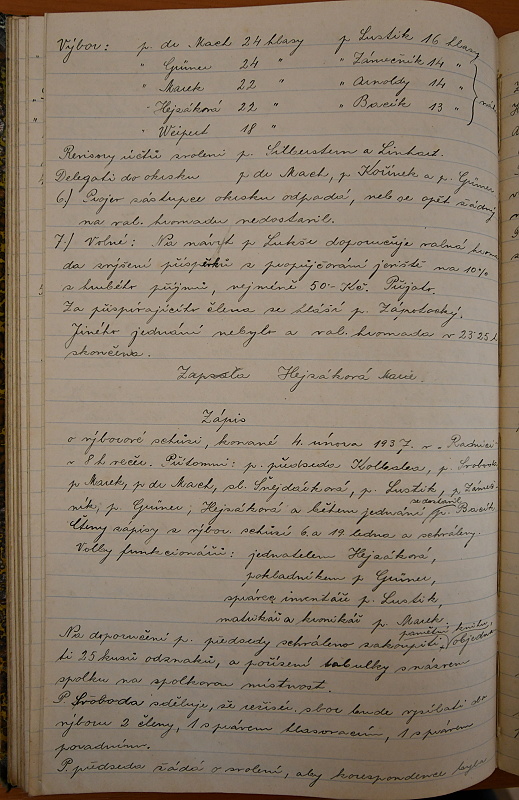 Výbor: p. de Mach 24 hlasy p Lustik 16 hlasy
" Grüner 24 " " Zámečník 14 "
" Marek 22 " " Arnoldy 14 "
" Hejzáková 22 " " Bacík 13 " náh.
" Weipert 18 "
Revisory účtů zvoleni p. Silberstern a Linhart.
Delegáti do okrsku p de Mach, p Kořínek a p. Grüner.
6.) Projev zástupce okrsku odpadá, neb se opět žádný
na val. hromadu nedostavil.
7.) Volné: Na návrh p Lukše doporučuje valná hrom
da zvýšení příspěvků z propůjčování jeviště na 10%
z hrubého příjmu, nejméně 50·- Kč. Přijato.
Za přispívajícího člena se hlásí p. Zápotocký.
Jiného jednání nebylo a val. hromada v 23·25 h
skončena.
Zapsala Hejzáková Marie.
Zápis
o výborové schůzi, konané 4. února 1937. v "Radnici"
v 8 h večer. Přítomni: p. předseda Kolbales, p. Svoboda
p Marek, p de Mach, sl. Šnejdáčková, p. Lustik, p Zámeč-
ník, p. Grüner, Hejzáková a během jednání dostavil p. Bacík
Čteny zápisy z výbor. schůzí 6. a 19. ledna a schváleny.
Volby funkcionářů: jednatelem Hejzáková,
pokladníkem p Grüner,
správce inventáře p. Lustik,
matrikář a kronikář p. Marek.
Na doporučení p. předsedy schváleno zakoupiti pamětní knihu, objedna
ti 25 kusů odznaků, a pořízení tabulky s názvem
spolku na spolkovou místnost.
P. Svoboda sděluje, že režisér. sbor bude vysílati do
výboru 2 členy, 1 s právem hlasovacím, 1 s právem
poradním.
P. předseda žádá o svolení, aby korespondence byla